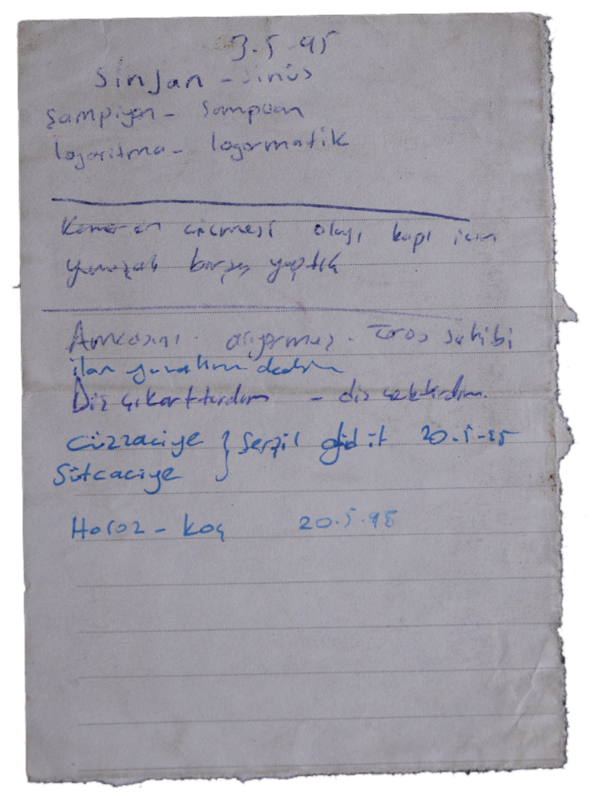 3.5.95
Sinjan - sinüs
Şampiyon - Şampuan
logaritma - logormatik
Kameran olayı kapı için
yumuşak barış yaptık
Amcasını arıyormuş. Toros sahibi
ilan yuvalım dedim
Diş çıkarttırdım - diş çektirdim.
Cızzaciye } Serpil 20.5.95
Sütcaciye
Horoz - koç 20.5.95